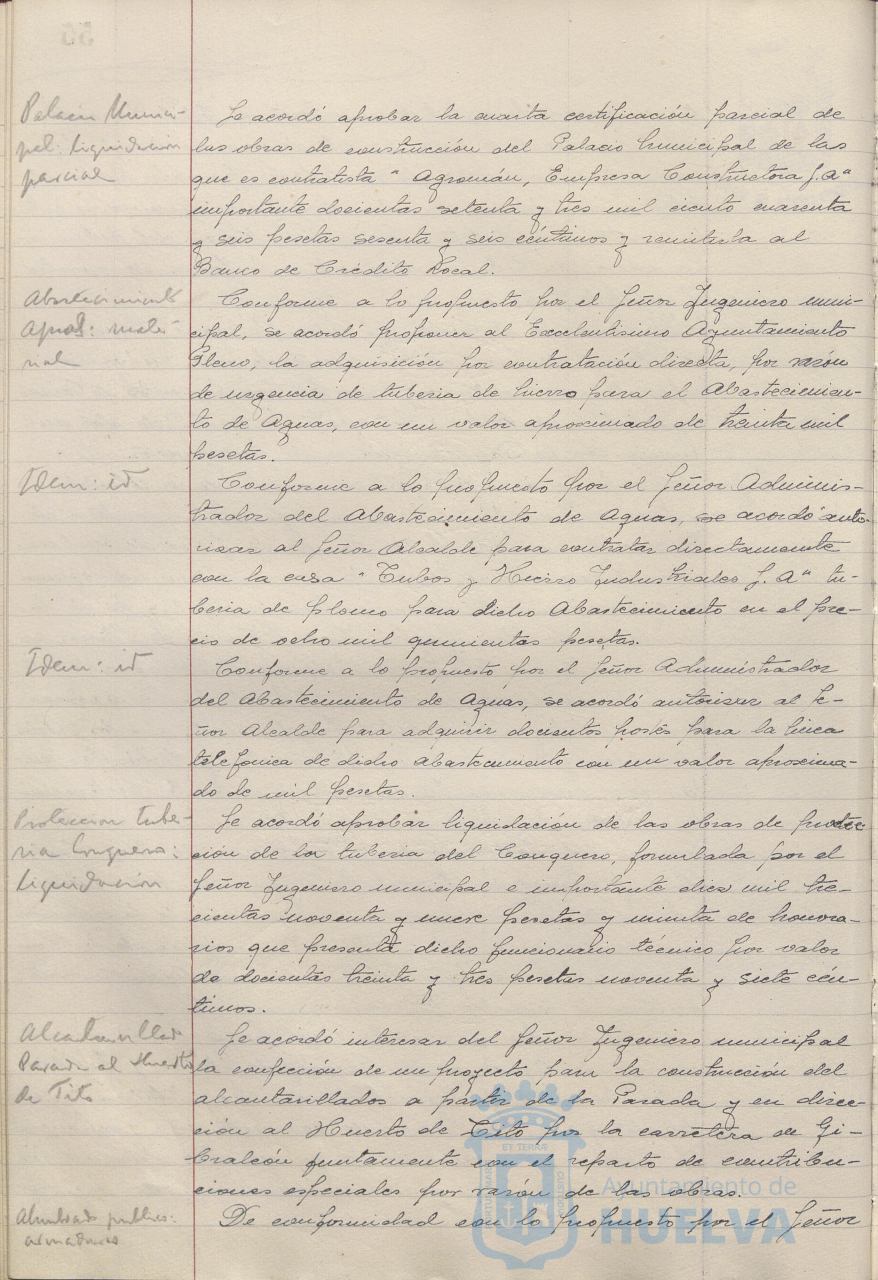 Palacio Munici-
pal: Liquidación
parcial
Se acordó aprobar la cuarta certificación parcial de
las obras de construcción del Palacio Municipal de las
que es contratista "Agromán, Empresa Constructora S.A"
importante docientas setenta y tres mil ciento cuarenta
y seis pesetas sesenta y seis céntimos y remitirla al
Banco de Crédito Local.
Abastecimiento
Aguas: mate-
rial
Conforme a lo propuesto por el Señor Ingeniero muni-
cipal, se acordó proponer al Excelentísimo Ayuntamiento
Pleno, la adquisición por contratación directa, por razón
de urgencia de tuberia de hierro para el Abastecimien-
to de Aguas, con un valor aproximado de treinta mil
pesetas.
Idem: id
Conforme a lo propuesto por el Señor Adminis-
trador del Abastecimiento de Aguas, se acordó auto-
rizar al Señor Alcalde para contratar directamente
con la casa "Tubos y Hierro Industriales S. A" tu-
beria de plomo para dicho Abastecimiento en el pre-
cio de ocho mil quinientas pesetas.
Idem: id
Conforme a lo propuesto por el Señor Administrador
del Abastecimiento de Aguas, se acordó autorizar al Se-
ñor Alcalde para adquirir docientos postes para la linea
telefonica de dicho Abastecimiento con un valor aproxima-
do de mil pesetas.
Proteccion tube-
ria Conquero:
Liquidación
Se acordó aprobar liquidación de las obras de protec-
ción de la tuberia del Conquero, formulada por el
Señor Ingeniero municipal e importante diez mil tre-
cientas noventa y nueve pesetas y minuta de honora-
rios que presenta dicho funcionario técnico por valor
de docientas treinta y tres pesetas noventa y siete cén-
timos.
Alcantarillado
Parada al Huerto
de Tito
Se acordó interesar del Señor Ingeniero municipal
la confección de un proyecto para la construcción del
alcantarillados a partir de la Parada y en direc-
ción al Huerto de Tito por la carretera de Gi-
braleón juntamente con el reparto de contribu-
ciones especiales por razón de las obras.
Alumbrado publico:
De conformidad con lo propuesto por el Señor
Ayuntamiento de
HUELVA